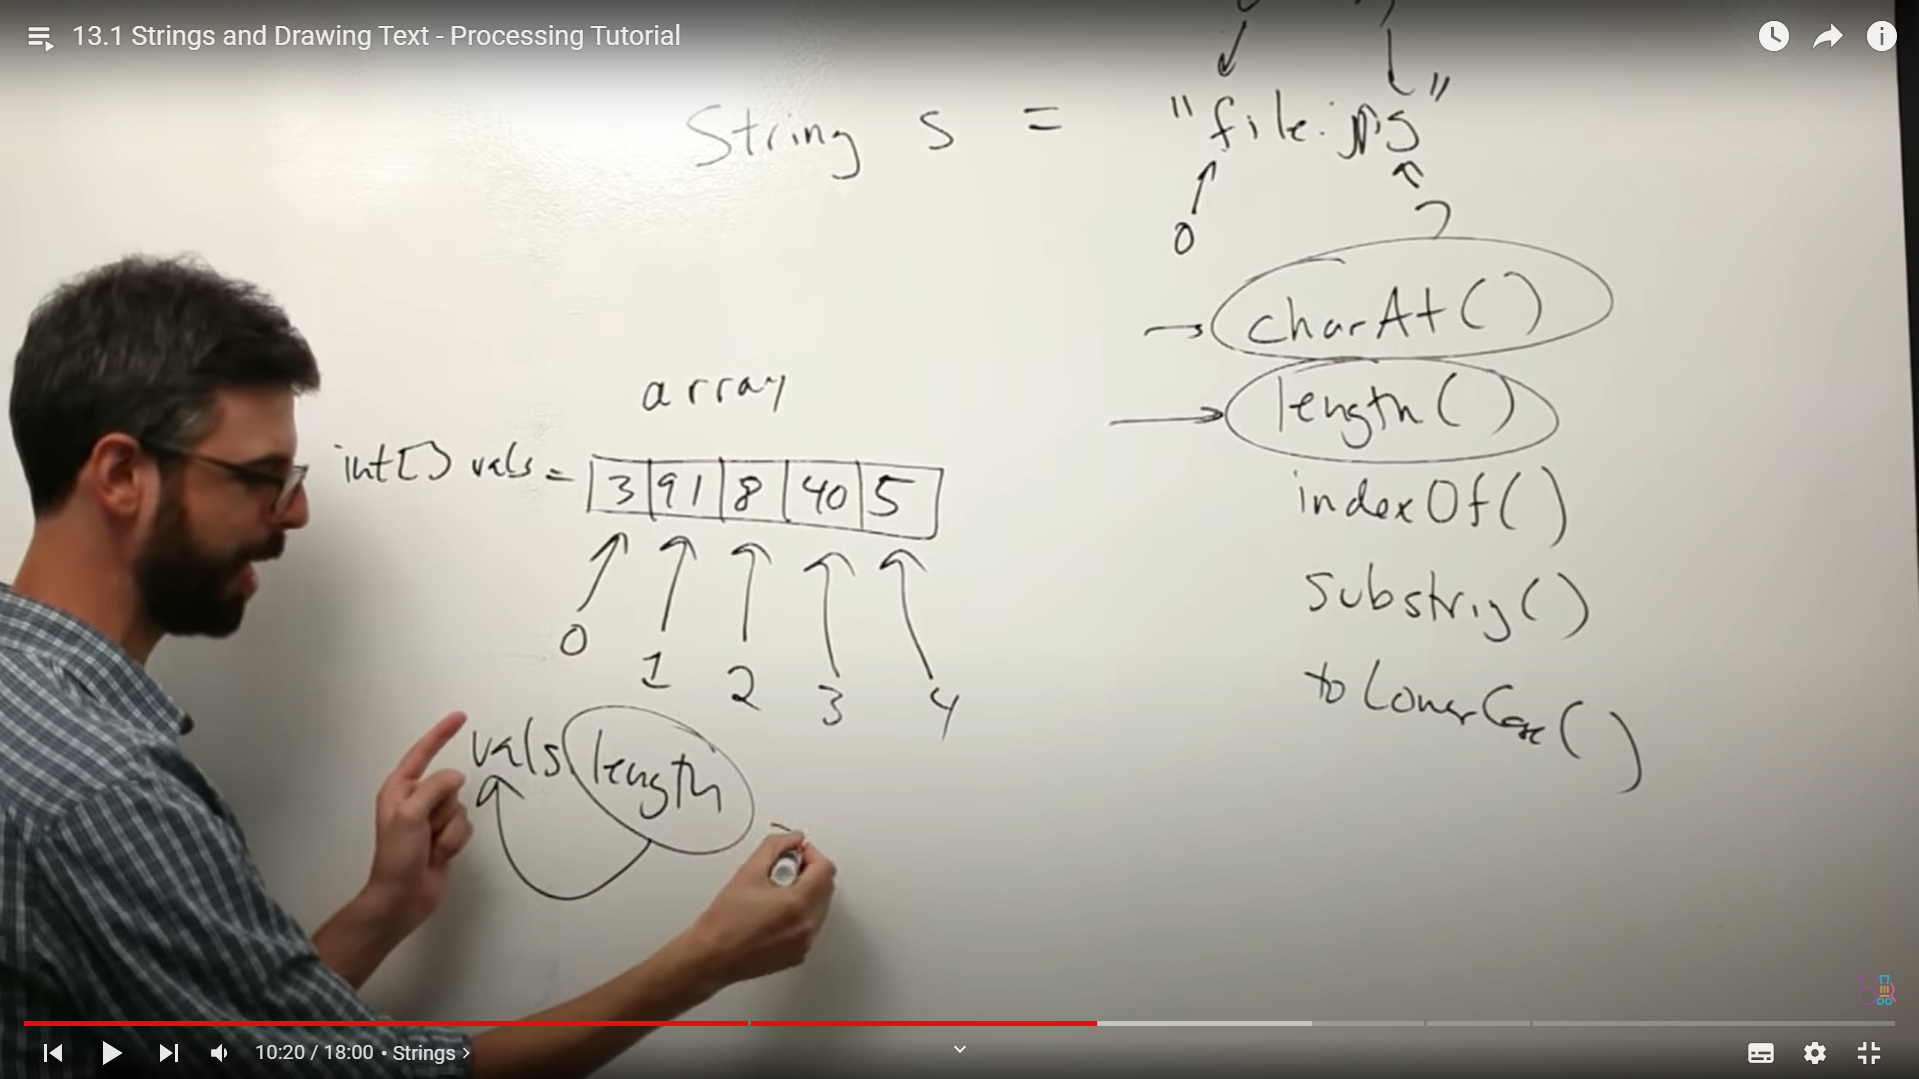 13.1 Strings and Drawing Text - Processing Tutorial
String s = "file.jpg"
0
7
charAt()
length()
indexOf()
substrig()
toLowerCase()
array
int[] vals = 3 91 8 40 5
0 1 2 3 4
vals.length
10:20 / 18:00 • Strings >